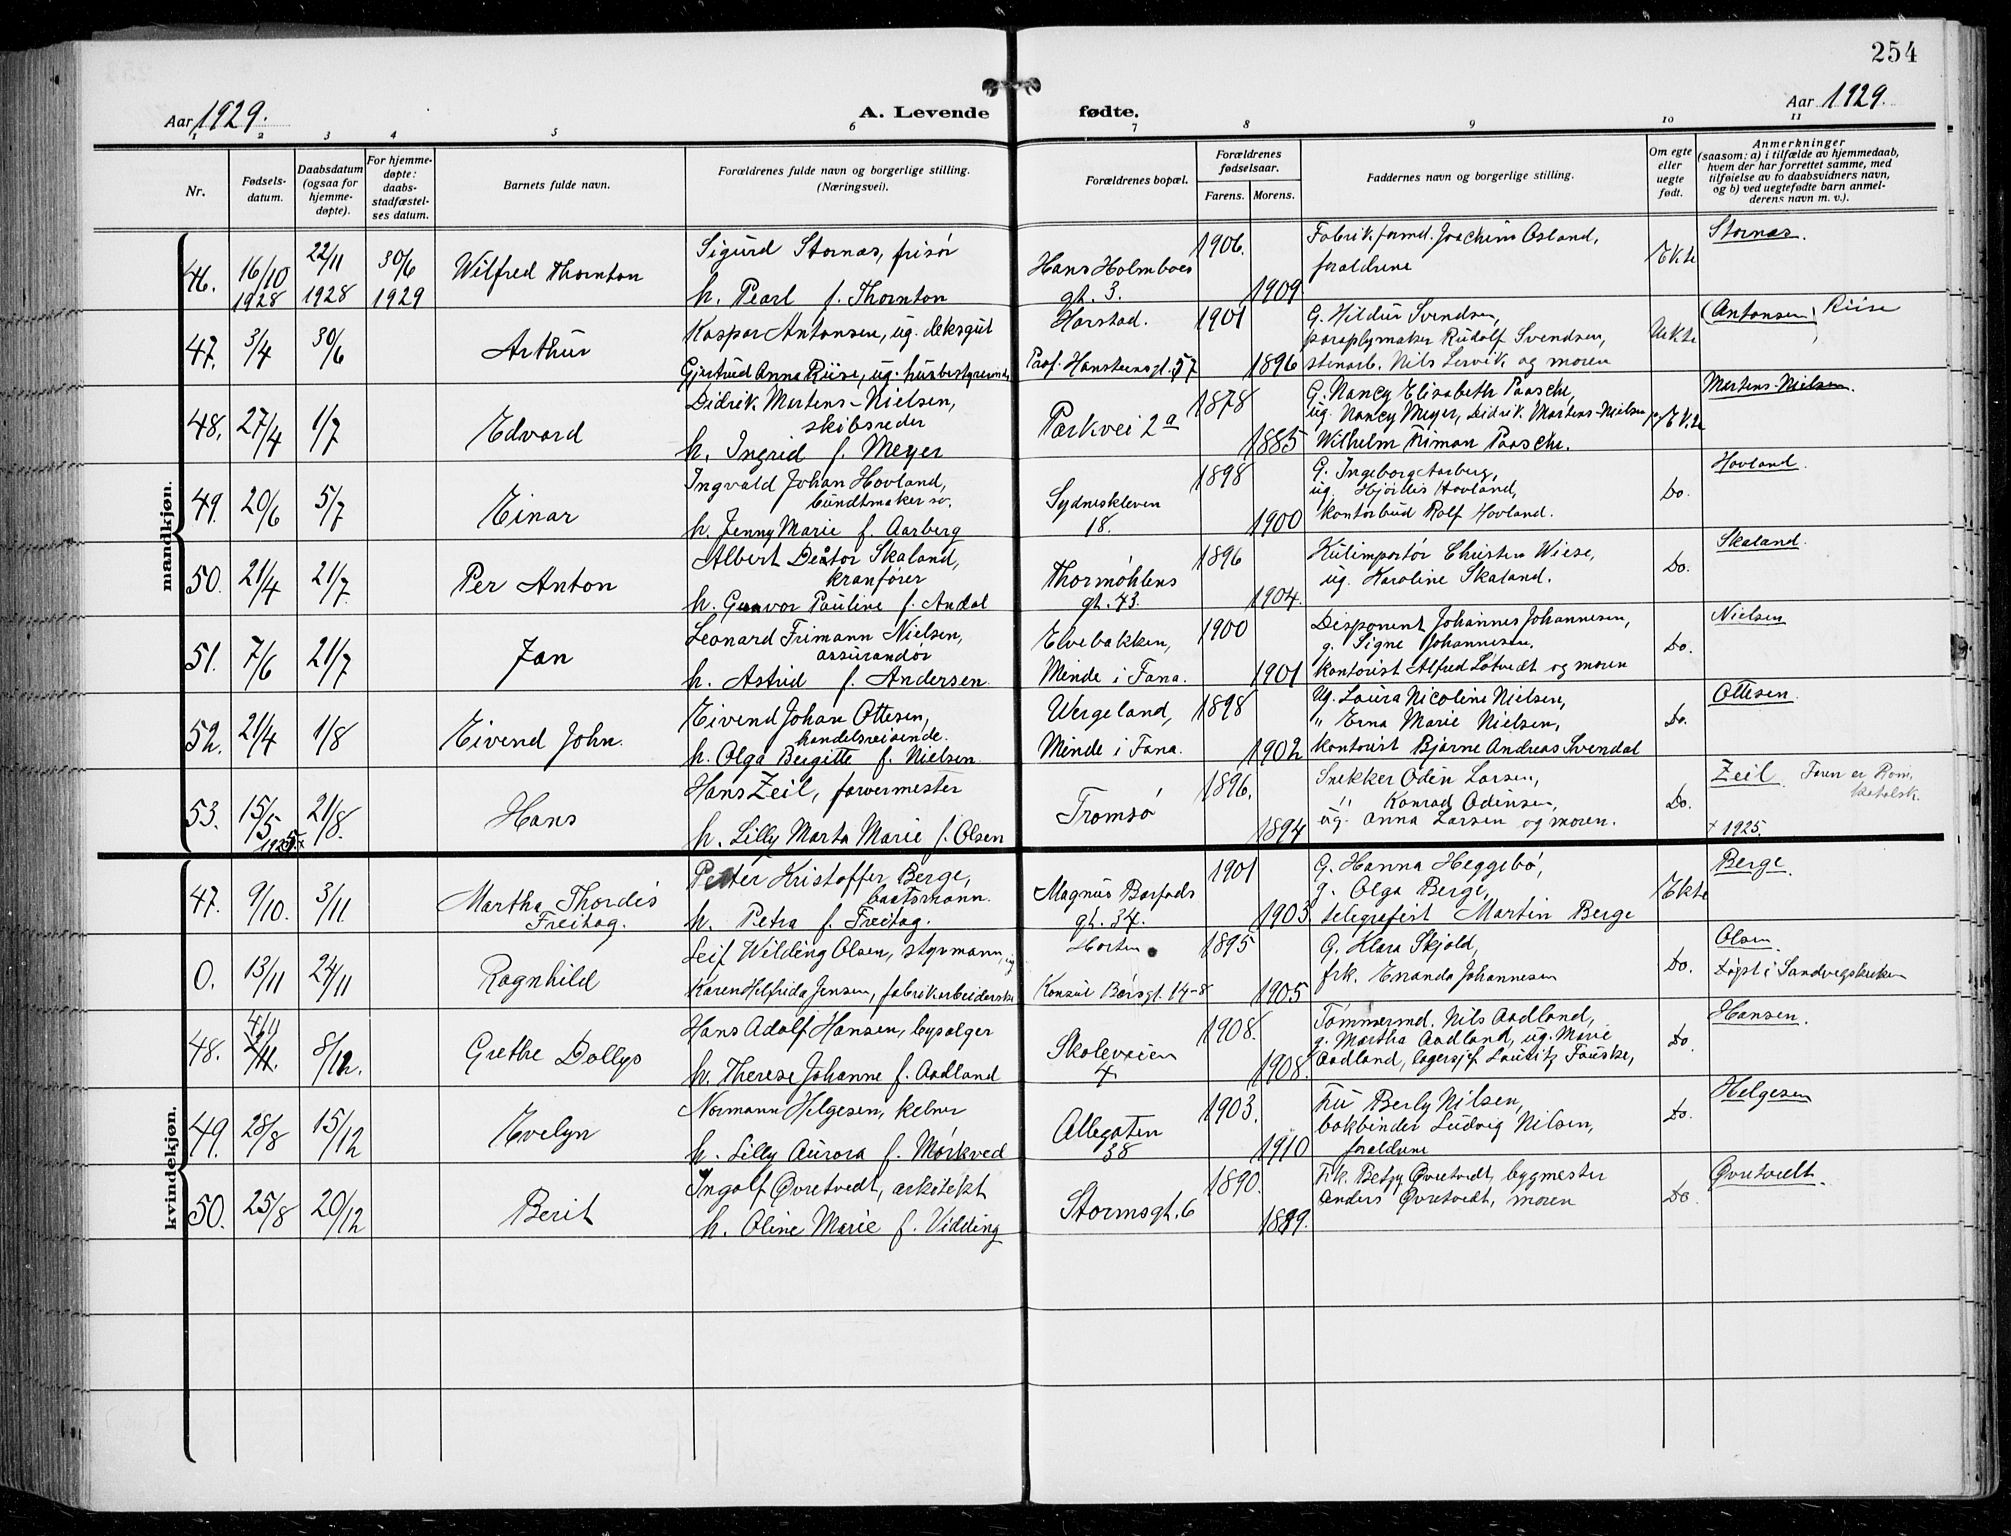 254
Aar 1929.
A. Levende fødte.
Aar 1929.
1 2 3 4 5 6 7 8 9 10 11
Nr.
Fødsels-
datum.
Daabsdatum
(ogsaa for
hjemme-
døpte).
For hjemme-
døpte:
daabs-
stadfæstel-
ses datum.
Barnets fulde navn.
Forældrenes fulde navn og borgerlige stilling.
(Næringsvei).
Forældrenes bopæl.
Forældrenes
fødselsaar.
Farens. Morens.
Faddernes navn og borgerlige stilling.
Om egte
eller
uegte
født.
Anmerkninger
(saasom: a) i tilfælde av hjemmedaab,
hvem der har forrettet samme, med
tilføielse av to daabsvidners navn,
og b) ved uegtefødte barn anmel-
derens navn m. v.).
mandkjøn.
46. 16/10 1928 22/11 1928 30/6 1929 Wilfred Thornton
Sigurd Stornæs, frisør
h. Pearl f. Thornton
Hans Holmboes
gt. 3.
1906. 1909.
Fabrikformd. Joachim Osland,
forældrene
Ekte
Stornæs.
47. 3/4 30/6 Arthur
Kaspar Antonsen, ug. deksgut
Gjertrud Anna Riise, ug. husbestyrerinde
Harstad.
Prof. Hansteensgt. 57
1901 1896
G. Hildur Svendsen,
paraplymaker Rudolf Svendsen,
stenarb. Nils Lervik og moren
Uekte
(Antonsen) Riise
48. 27/4 1/7 Edvard
Didrik Martens-Nielsen,
skibsreder
h. Ingrid f. Meyer
Parkvei 2a
1878 1885
G. Nancy Elisabeth Paasche,
ug. Nancy Meyer, Didrik Martens-Nielsen jr.
Wilhelm Riman Paasche.
Ekte
Martens-Nielsen.
49. 20/6 5/7 Einar
Ingvald Johan Hovland,
bundtmaker sv.
h. Jenny Marie f. Aarberg
Sydneskleven
18.
1898 1900
G. Ingeborg Aarberg,
ug. Hjørdis Hovland,
kontorbud Rolf Hovland.
Do.
Hovland.
50. 21/4 21/7 Per Anton
Albert Skaland,
kranfører
h. Gunvor Pauline f. Andal
Thormøhlens
gt. 43.
1896 1904.
Kulimportør Christen Wiese,
ug. Karoline Skaland.
Do.
Skaland.
51. 7/6 21/7 Jan
Leonard Frimann Nielsen,
assurandør
h. Astrid f. Andersen.
Elvebakken,
Minde i Fana.
1900 1901
Disponent Johannes Johannesen,
g. Signe Johannesen,
kontorist Alfred Løtvedt og moren
Do.
Nielsen
52. 21/4 1/8 Eivend John.
Eivend Johan Ottesen,
handelsreisende.
h. Olga Bergitte f. Nielsen.
Wergeland,
Minde i Fana.
1898 1902
Ug. Laura Nicoline Nielsen,
" Erna Marie Nielsen,
kontorist Bjarne Andreas Svendal
Do.
Ottesen.
53. 15/5 1925.+ 21/8. Hans
Hans Zeil, farvermester
h. Lilly Marta Marie f. Olsen
Tromsø
1896. 1894
Snekker Odin Larsen,
" Konrad Odinsen,
ug. Anna Larsen og moren.
Do.
Zeil. Faren er Rom.
katolsk.
+ 1925.
kvindekjøn.
47. 9/10. 3/11 Martha Thordis
Freitag.
Petter Kristoffer Berge,
baatsmann.
h. Petra f. Freitag.
Magnus Barfods
gt. 34.
1901 1903
G. Hanna Heggebø,
g. Olga Berge,
telegrafist Martin Berge
Ekte
Berge.
0. 13/11 24/11 Ragnhild
Leif Wilding Olsen, styrmann, ug
Karen Helfrida Jensen, fabrikarbeiderske
Horten
Konsul Børsgt. 14-8
1895 1905
G. Klara Skjold,
frk. Enanda Johannesen
Do.
Olsen
Døpt i Sandvigskirken
48. 4/11 8/12. Grethe Dollys
Hans Adolf Hansen, bysælger
h. Therese Johanne f. Aadland
Skoleveien
4
1908. 1908.
Tømmermd. Nils Aadland,
g. Martha Aadland, ug. Marie
Aadland, lagersjef Lauritz Fauske,
Do.
Hansen.
49. 28/8 15/12 Evelyn
Normann Helgesen, kelner
h. Lilly Aurora f. Mørkved
Allegaten
38
1903. 1910
Fru Berly Nilsen,
bokbinder Ludvig Nilsen,
forældrene
Do.
Helgesen
50. 25/8 20/12 Berit
Ingolf Øvretvedt, arkitekt
h. Oline Marie f. Vidding
Stormsgt. 6
1890. 1899.
Frk. Betzy Øvretvedt, bygmester
Anders Øvretvedt, moren
Do
Øvretvedt.